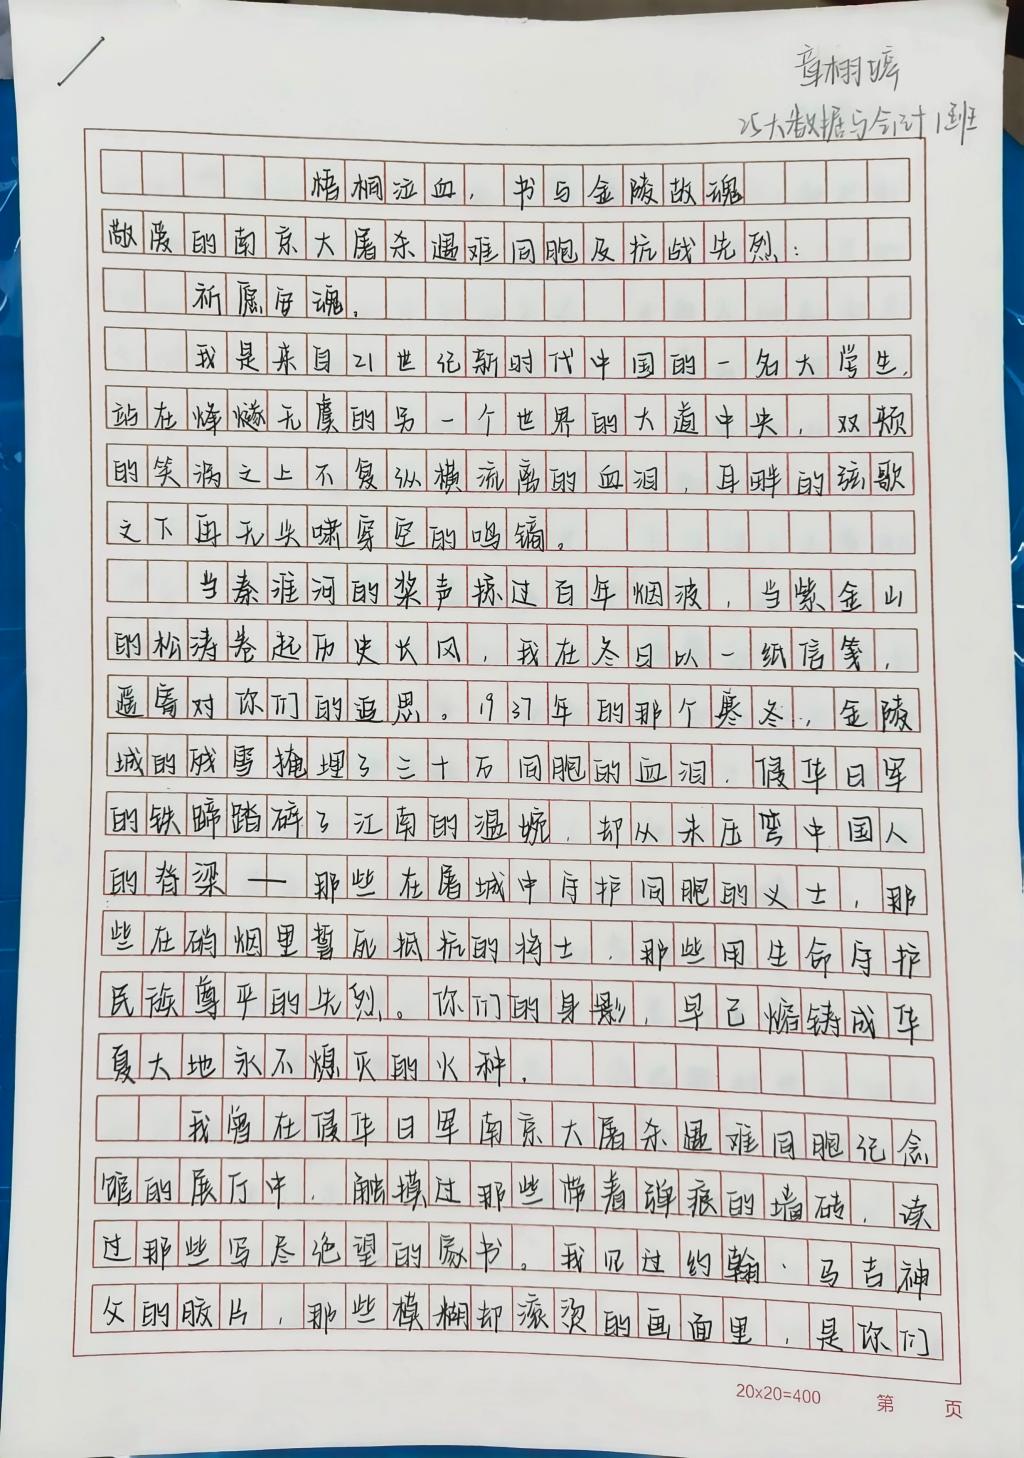 章栩婷
25大数据与会计1班
梧桐泣血，书与金陵故魂
敬爱的南京大屠杀遇难同胞及抗战先烈：
祈愿安魂。
我是来自21世纪新时代中国的一名大学生，
站在烽燧无虞的另一个世界的大道中央，双颊
的笑涡之上不复纵横流离的血泪，耳畔的弦歌
之下再无尖啸穿空的鸣镝。
当秦淮河的桨声掠过百年烟波，当紫金山
的松涛卷起历史长风，我在冬日以一纸信笺，
遥寄对你们的追思。1937年的那个寒冬，金陵
城的残雪掩埋了三十万同胞的血泪，侵华日军
的铁蹄踏碎了江南的温婉，却从未压弯中国人
的脊梁——那些在屠城中守护同胞的义士，那
些在硝烟里誓死抵抗的将士，那些用生命守护
民族尊严的先烈。你们的身影，早已熔铸成华
夏大地永不熄灭的火种。
我曾在侵华日军南京大屠杀遇难同胞纪念
馆的展厅中，触摸过那些带着弹痕的墙砖，读
过那些写尽绝望的家书。我见过约翰·马吉神
父的胶片，那些模糊却滚烫的画面里，是你们
20x20=400 第 页